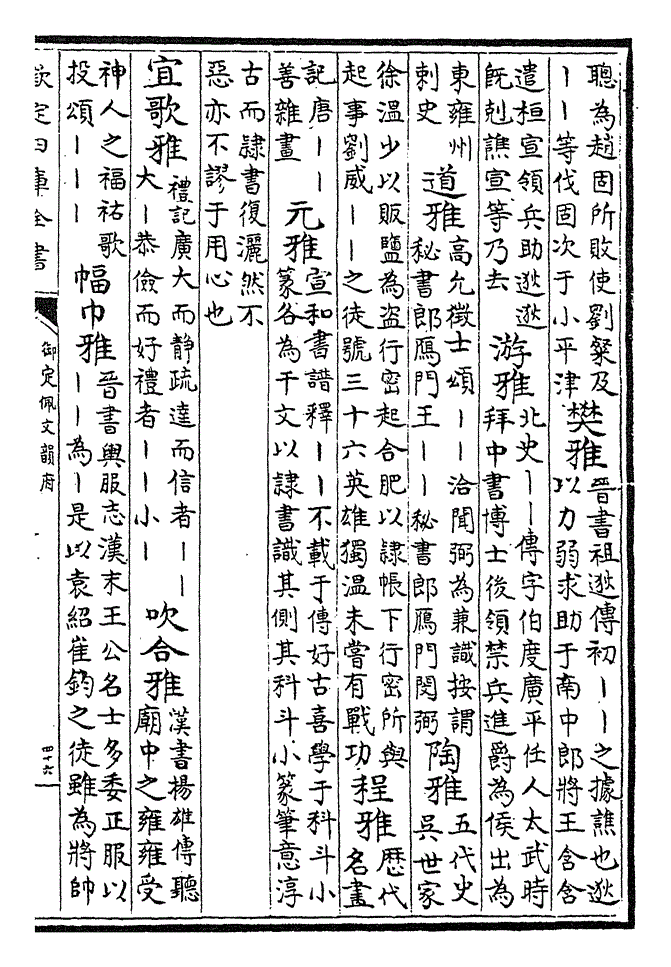 聰為趙固所敗使劉粲及
丨丨等伐固次于小平津
樊雅
晉書祖逖傳初丨丨之據譙也逖
以力弱求助于南中郎將王含含
遣桓宣領兵助逖逖
既剋譙宣等乃去
游雅
北史丨丨傳字伯度廣平任人太武時
拜中書博士後領禁兵進爵為侯出為
東雍州
刺史
道雅
高允徵士頌丨丨洽聞弼為兼識按謂
秘書郎鴈門王丨丨秘書郎鴈門閔弼
陶雅
五代史
吳世家
徐溫少以販鹽為盜行密起合肥以隷帳下行密所與
起事劉威丨丨之徒號三十六英雄獨溫未嘗有戰功
程雅
歴代
名畫
記唐丨丨
善雜畫
元雅
宣和書譜釋丨丨不載于傳好古喜學于科斗小
篆谷為千文以隷書識其側其科斗小篆筆意淳
古而隷書復灑然不
惡亦不謬于用心也
宜歌雅
禮記廣大而静疏達而信者丨丨
大丨恭儉而好禮者丨丨小丨
吹合雅
漢書楊雄傳聽
廟中之雍雍受
神人之福祐歌
投頌丨丨丨
幅巾雅
晉書輿服志漢末王公名士多委正服以
丨丨為丨是以袁紹崔鈞之徒雖為將帥
欽定四庫全書
御定佩文韻府
四十六